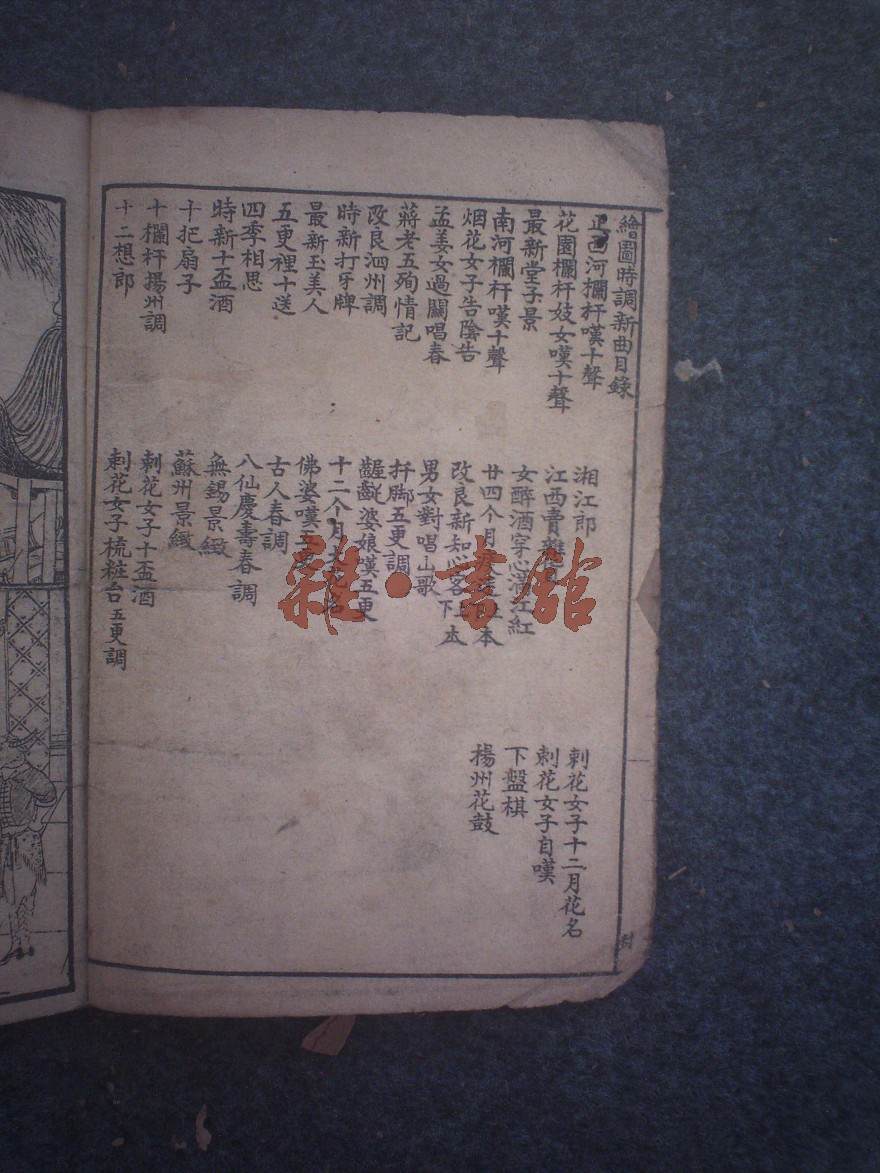 繪圖時調新曲目錄
正西河欄杆嘆十聲
花園欄杆妓女嘆十聲
最新堂子景
南河欄杆嘆十聲
烟花女子告陰告
孟姜女過關唱春
蔣老五殉情記
改良泗州調
時新打牙牌
最新玉美人
五更裡十送
四季相思
時新十盃酒
十把扇子
十欄杆揚州調
十二想郎
湘江郎
江西賣雜
女醉酒穿心滿江紅
廿四个月
本
改良新知心客上下本
男女對唱山歌
扦脚五更調
齷齪婆娘嘆五更
十二个月
佛婆嘆五更
古人春調
八仙慶壽春調
無錫景緻
蘇州景緻
刺花女子十盃酒
刺花女子梳粧台五更調
刺花女子十二月花名
刺花女子自嘆
下盤棋
揚州花鼓
雜·書舘